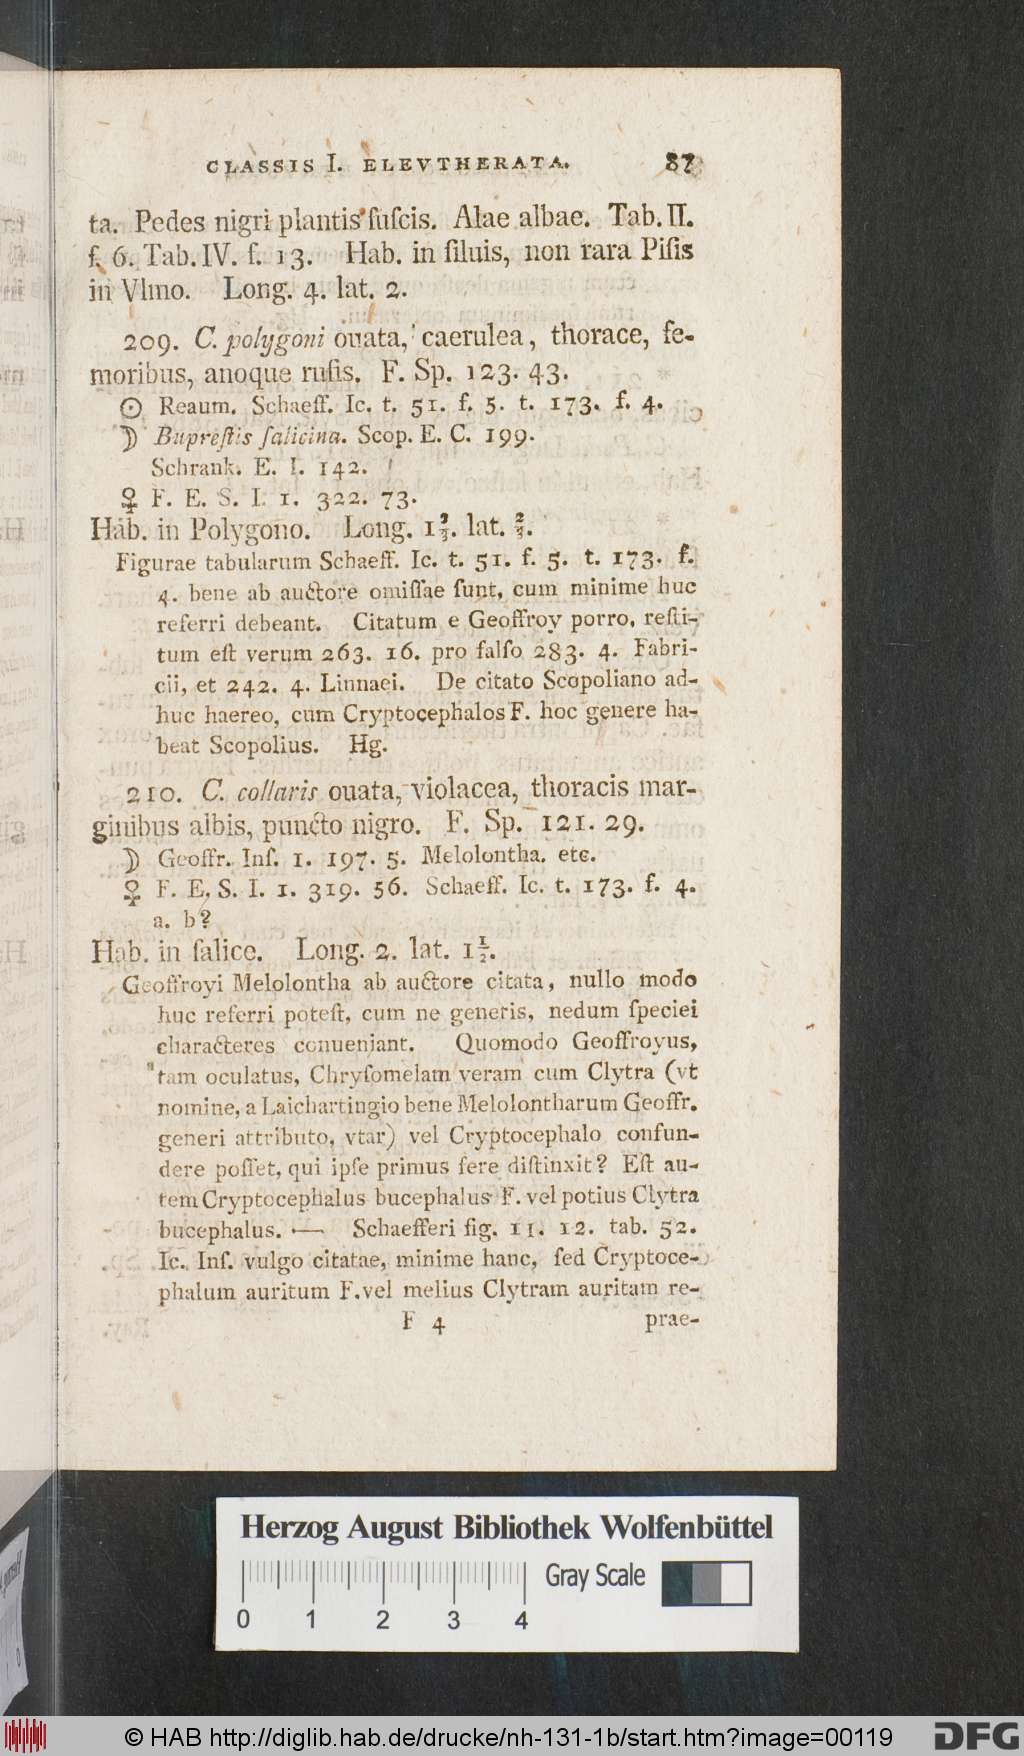 CLASSIS I. ELEVTHERATA. 87
ta. Pedes nigri plantis fuſcis. Alae albae. Tab. II.
f. 6. Tab. IV. f. 13. Hab. in ſiluis, non rara Piſis
in Vlmo. Long. 4. lat. 2.
209. C. polygoni ouata, caerulea, thorace, fe-
moribus, anoque rufis. F. Sp. 123. 43.
☉ Reaum. Schaeff. Ic. t. 51. f. 5. t. 173. f. 4.
☽ Bupreſtis ſalicina. Scop. E. C. 199.
Schrank. E. I. 142.
♀ F. E. S. I. 1. 322. 73.
Hab. in Polygono. Long. 1⅔. lat. ⅔.
Figurae tabularum Schaeff. Ic. t. 51. f. 5. t. 173. f.
4. bene ab auctore omiſſae ſunt, cum minime huc
referri debeant. Citatum e Geoffroy porro, reſti-
tum eſt verum 263. 16. pro falſo 283. 4. Fabri-
cii, et 242. 4. Linnaei. De citato Scopoliano ad-
huc haereo, cum Cryptocephalos F. hoc genere ha-
beat Scopolius. Hg.
210. C. collaris ouata, violacea, thoracis mar-
ginibus albis, puncto nigro. F. Sp. 121. 29.
☽ Geoffr. Inſ. 1. 197. 5. Melolontha. etc.
♀ F. E. S. I. 1. 319. 56. Schaeff. Ic. t. 173. f. 4.
a. b?
Hab. in ſalice. Long. 2. lat. 1½.
Geoffroyi Melolontha ab auctore citata, nullo modo
huc referri poteſt, cum ne generis, nedum ſpeciei
characteres conueniant. Quomodo Geoffroyus,
tam oculatus, Chryſomelam veram cum Clytra (vt
nomine, a Laichartingio bene Melolontharum Geoffr.
generi attributo, vtar) vel Cryptocephalo confun-
dere poſſet, qui ipſe primus fere diſtinxit? Eſt au-
tem Cryptocephalus bucephalus F. vel potius Clytra
bucephalus. — Schaefferi fig. 11. 12. tab. 52.
Ic. Inſ. vulgo citatae, minime hanc, ſed Cryptoce-
phalum auritum F. vel melius Clytram auritam re-
F 4 prae-
Herzog August Bibliothek Wolfenbüttel
Gray Scale
0 1 2 3 4
© HAB http://diglib.hab.de/drucke/nh-131-1b/start.htm?image=00119
DFG